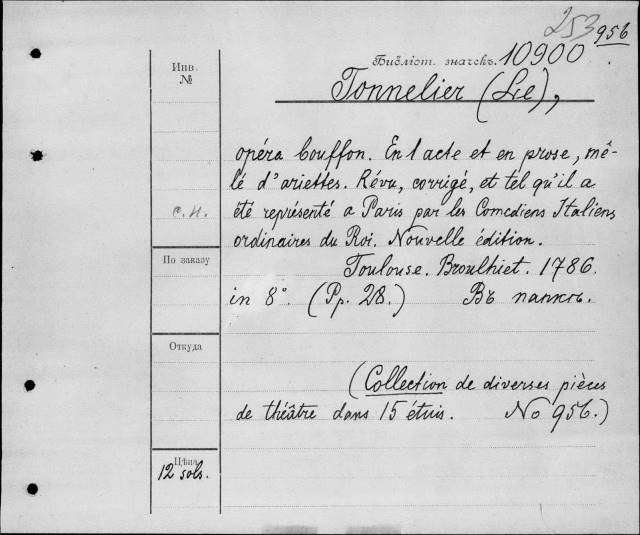 253 956
Библіот. значекъ. 10900
Инв.
№
Tonnelier (Le),
opéra bouffon. En 1 acte et en prose, mê-
lé d'ariettes. Révu, corrigé, et tel qu'il a
с.н. été représenté a Paris par les Comediens Italiens
ordinaires du Roi. Nouvelle édition.
По заказу
Toulouse. Broulhiet. 1786.
in 8°. (Pp. 28.) Въ папкѣ.
Откуда
(Collection de diverses pièces
de théâtre dans 15 étuis. No 956.)
Цѣна
12 sols.